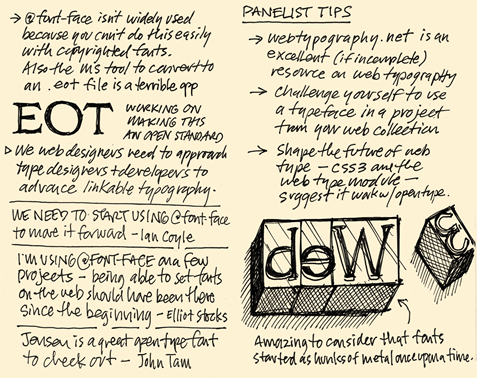 → @font-face isn't widely used
because you can't do this easily
with copyrighted fonts.
Also the MS tool to convert to
an .eot file is a terrible app
EOT WORKING ON
MAKING THIS
AN OPEN STANDARD
▷ We web designers need to approach
type designers + developers to
advance linkable typography.
WE NEED TO START USING @font-face
to move it forward — Ian Coyle
I'M USING @FONT-FACE on a few
projects — being able to set fonts
on the web should have been there
since the beginning — Elliot Stocks
Jenson is a great opentype font
to check out — John Tam
PANELIST TIPS
→ webtypography.net is an
excellent (if incomplete)
resource on web typography
→ Challenge yourself to use
a typeface in a project
from your web collection
→ Shape the future of web
type — CSS3 and the
web type module —
suggest it work w/opentype.
Web
Amazing to consider that fonts
started as hunks of metal once upon a time.